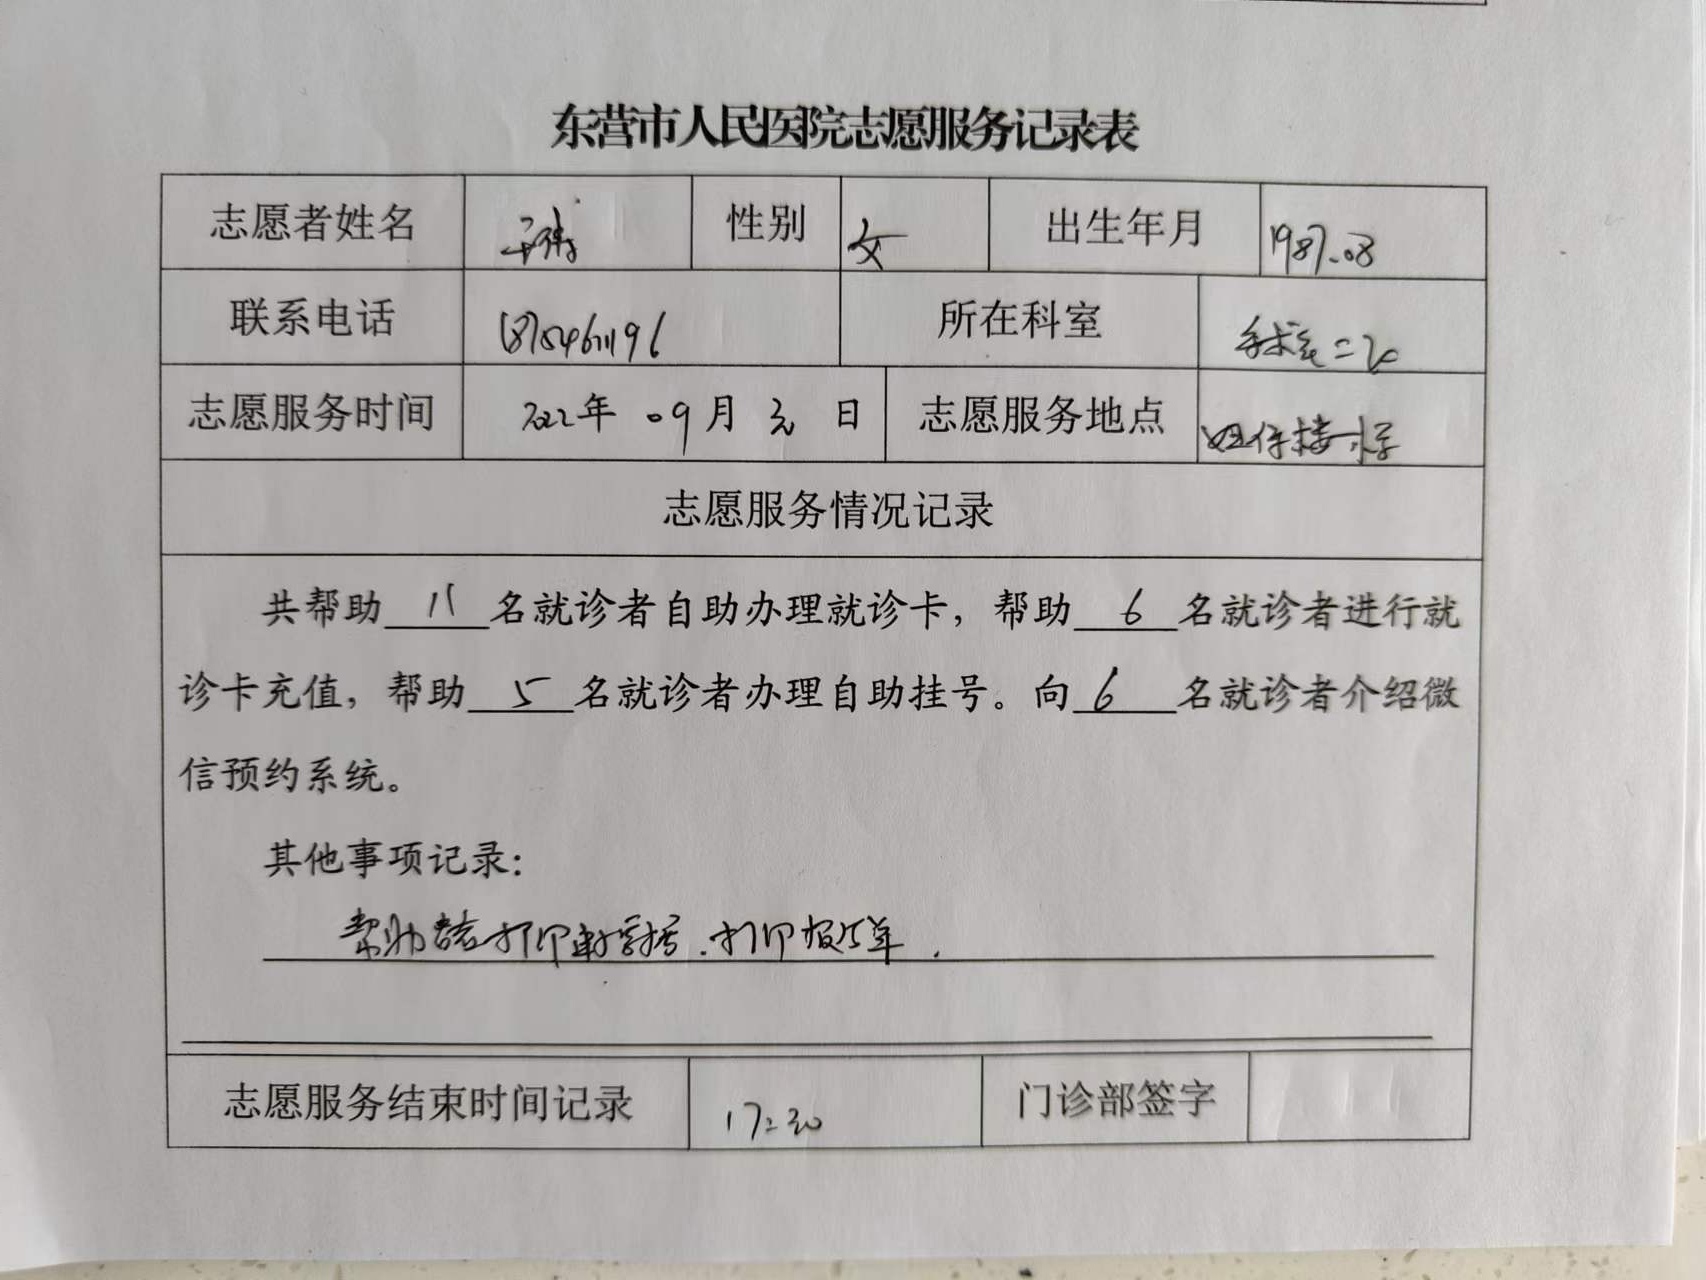 东营市人民医院志愿服务记录表
志愿者姓名 性别 女 出生年月 1987.08
联系电话 18754611196 所在科室 手术室二区
志愿服务时间 2022年 09月 30 日 志愿服务地点 妇保楼一楼
志愿服务情况记录
共帮助 11 名就诊者自助办理就诊卡，帮助 6 名就诊者进行就
诊卡充值，帮助 5 名就诊者办理自助挂号。向 6 名就诊者介绍微
信预约系统。
其他事项记录：
帮助患者打印 打印报告单.
志愿服务结束时间记录 17:30 门诊部签字